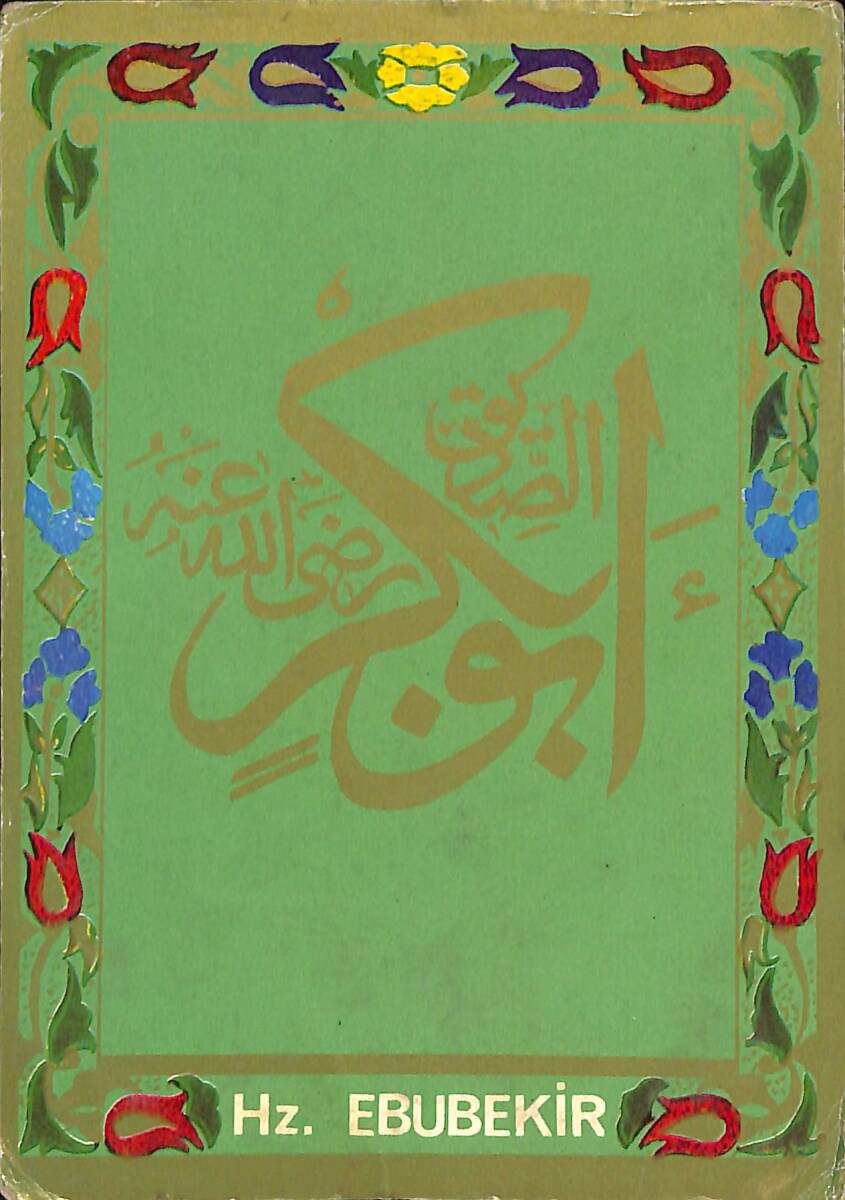 أبو بكرٍ
الصّدّيق
رضى الله عنه
Hz. EBUBEKİR